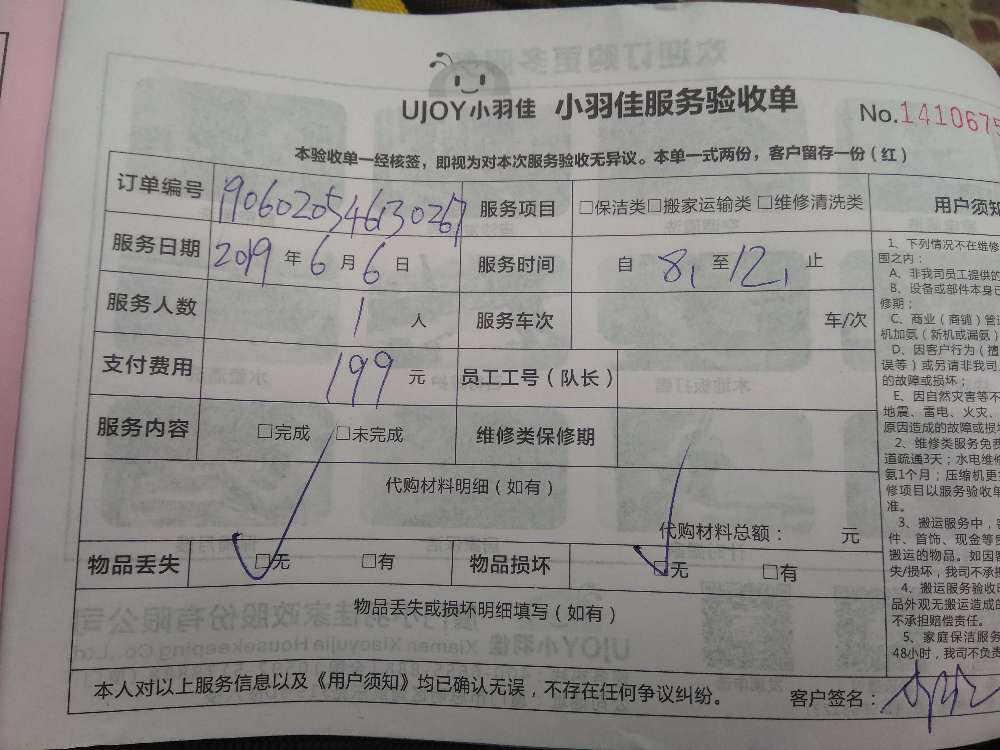 UJOY小羽佳 小羽佳服务验收单
No.141067
本验收单一经核签，即视为对本次服务验收无异议。本单一式两份，客户留存一份（红）
订单编号 190602054613026 服务项目 □保洁类□搬家运输类 □维修清洗类 用户须知
服务日期 2019 年 6 月 6 日 服务时间 自 8, 至 12, 止
服务人数 1 人 服务车次 车/次
支付费用 199 元 员工工号（队长）
服务内容 □完成 □未完成 维修类保修期
代购材料明细（如有）
代购材料总额： 元
物品丢失 □无 □有 物品损坏 □无 □有
物品丢失或损坏明细填写（如有）
本人对以上服务信息以及《用户须知》均已确认无误，不存在任何争议纠纷。 客户签名：
1、下列情况不在维修
围之内：
A、非我司员工提供的
B、设备或部件本身已
修期；
C、商业（商铺）管道
机加氨（新机或漏氨）
D、因客户行为（擅
误等）或另请非我司
的故障或损坏；
E、因自然灾害等不
地震、雷电、火灾、
原因造成的故障或损坏
2、维修类服务免费
道疏通3天；水电维修
氨1个月；压缩机更
修项目以服务验收单
准。
3、搬运服务中，
件、首饰、现金等贵
搬运的物品。如因客
失/损坏，我司不承担
4、搬运服务验收时
品外观无搬运造成的
不承担赔偿责任。
5、家庭保洁服务
48小时，我司不负责